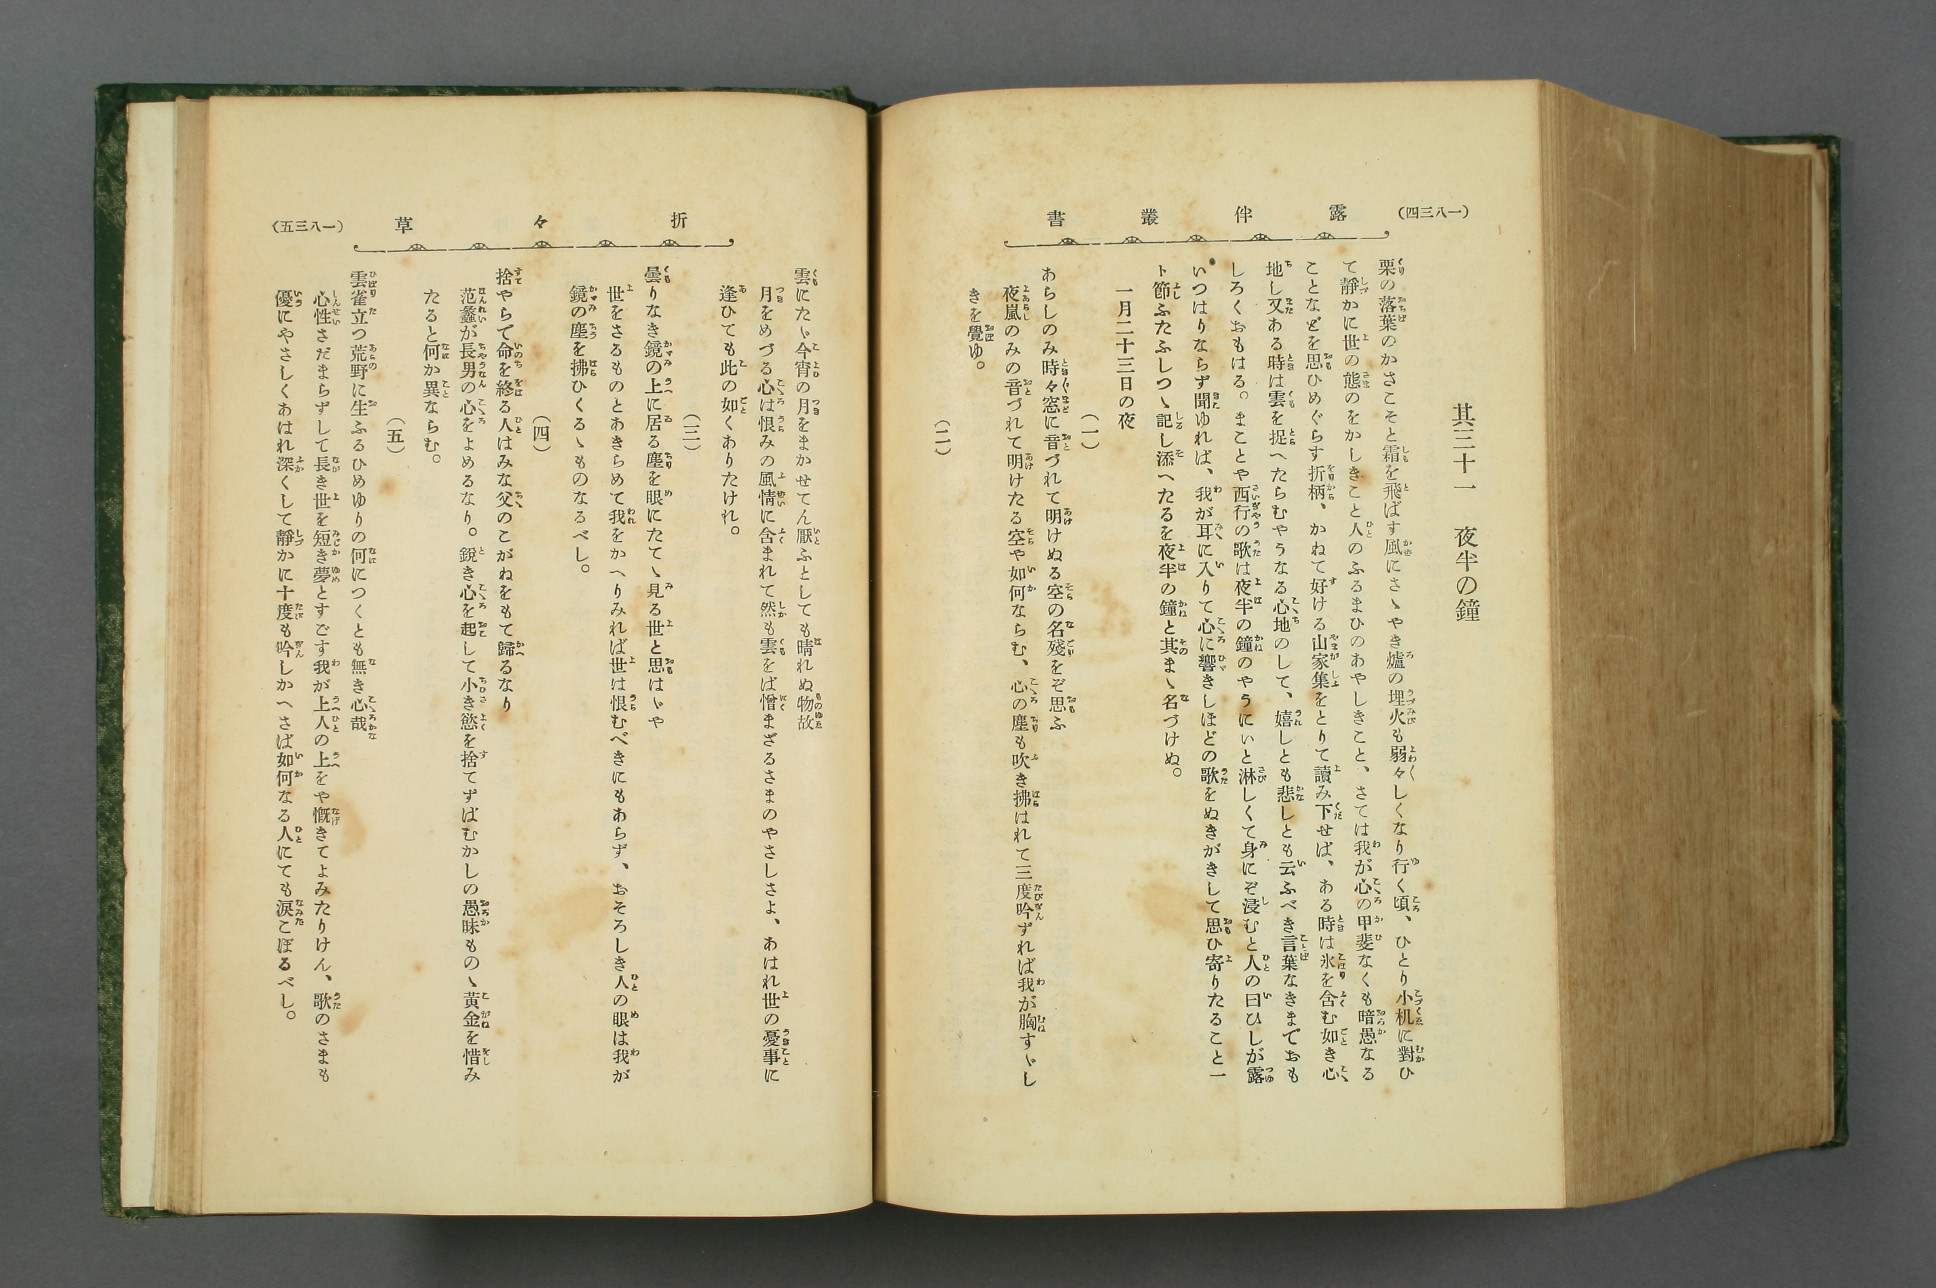 (一八三四)
露伴叢書
其三十一　夜半の鐘
栗の落葉のかさこそと霜を飛ばす風にさゝやき爐の埋火も弱々しくなり行く頃、ひとり小机に對ひ
て靜かに世の態のをかしきこと人のふるまひのあやしきこと、さては我が心の甲斐なくも暗愚なる
ことなどを思ひめぐらす折柄、かねて好ける山家集をとりて讀み下せば、ある時は氷を含む如き心
地し又ある時は雲を捉へたらむやうなる心地のして、嬉しとも悲しとも云ふべき言葉なきまでおも
しろくおもはる。まことや西行の歌は夜半の鐘のやうにいと淋しくて身にぞ浸むと人の曰ひしが露
いつはりならず聞ゆれば、我が耳に入りて心に響きしほどの歌をぬきがきして思ひ寄りたること一
ト節ふたふしつゝ記し添へたるを夜半の鐘と其まゝ名づけぬ。
一月二十三日の夜
(一)
あらしのみ時々窓に音づれて明けぬる空の名殘をぞ思ふ
夜嵐のみの音づれて明けたる空や如何ならむ、心の塵も吹き拂はれて三度吟ずれば我が胸すゞし
きを覺ゆ。
(二)
折々草
(一八三五)
雲にたゞ今宵の月をまかせてん厭ふとしても晴れぬ物故
月をめづる心は恨みの風情に含まれて然も雲をば憎まざるさまのやさしさよ、あはれ世の憂事に
逢ひても此の如くありたけれ。
(三)
曇りなき鏡の上に居る塵を眼にたてゝ見る世と思はゞや
世をさるものとあきらめて我をかへりみれば世は恨むべきにもあらず、おそろしき人の眼は我が
鏡の塵を拂ひくるゝものなるべし。
(四)
捨やらで命を終る人はみな父のこがねをもて歸るなり
范蠡が長男の心をよめるなり。銳き心を起して小き慾を捨てずばむかしの愚昧ものゝ黃金を惜み
たると何か異ならむ。
(五)
雲雀立つ荒野に生ふるひめゆりの何につくとも無き心哉
心性さだまらずして長き世を短き夢とすごす我が上人の上をや慨きてよみたりけん、歌のさまも
優にやさしくあはれ深くして靜かに十度も吟しかへさば如何なる人にても淚こぼるべし。